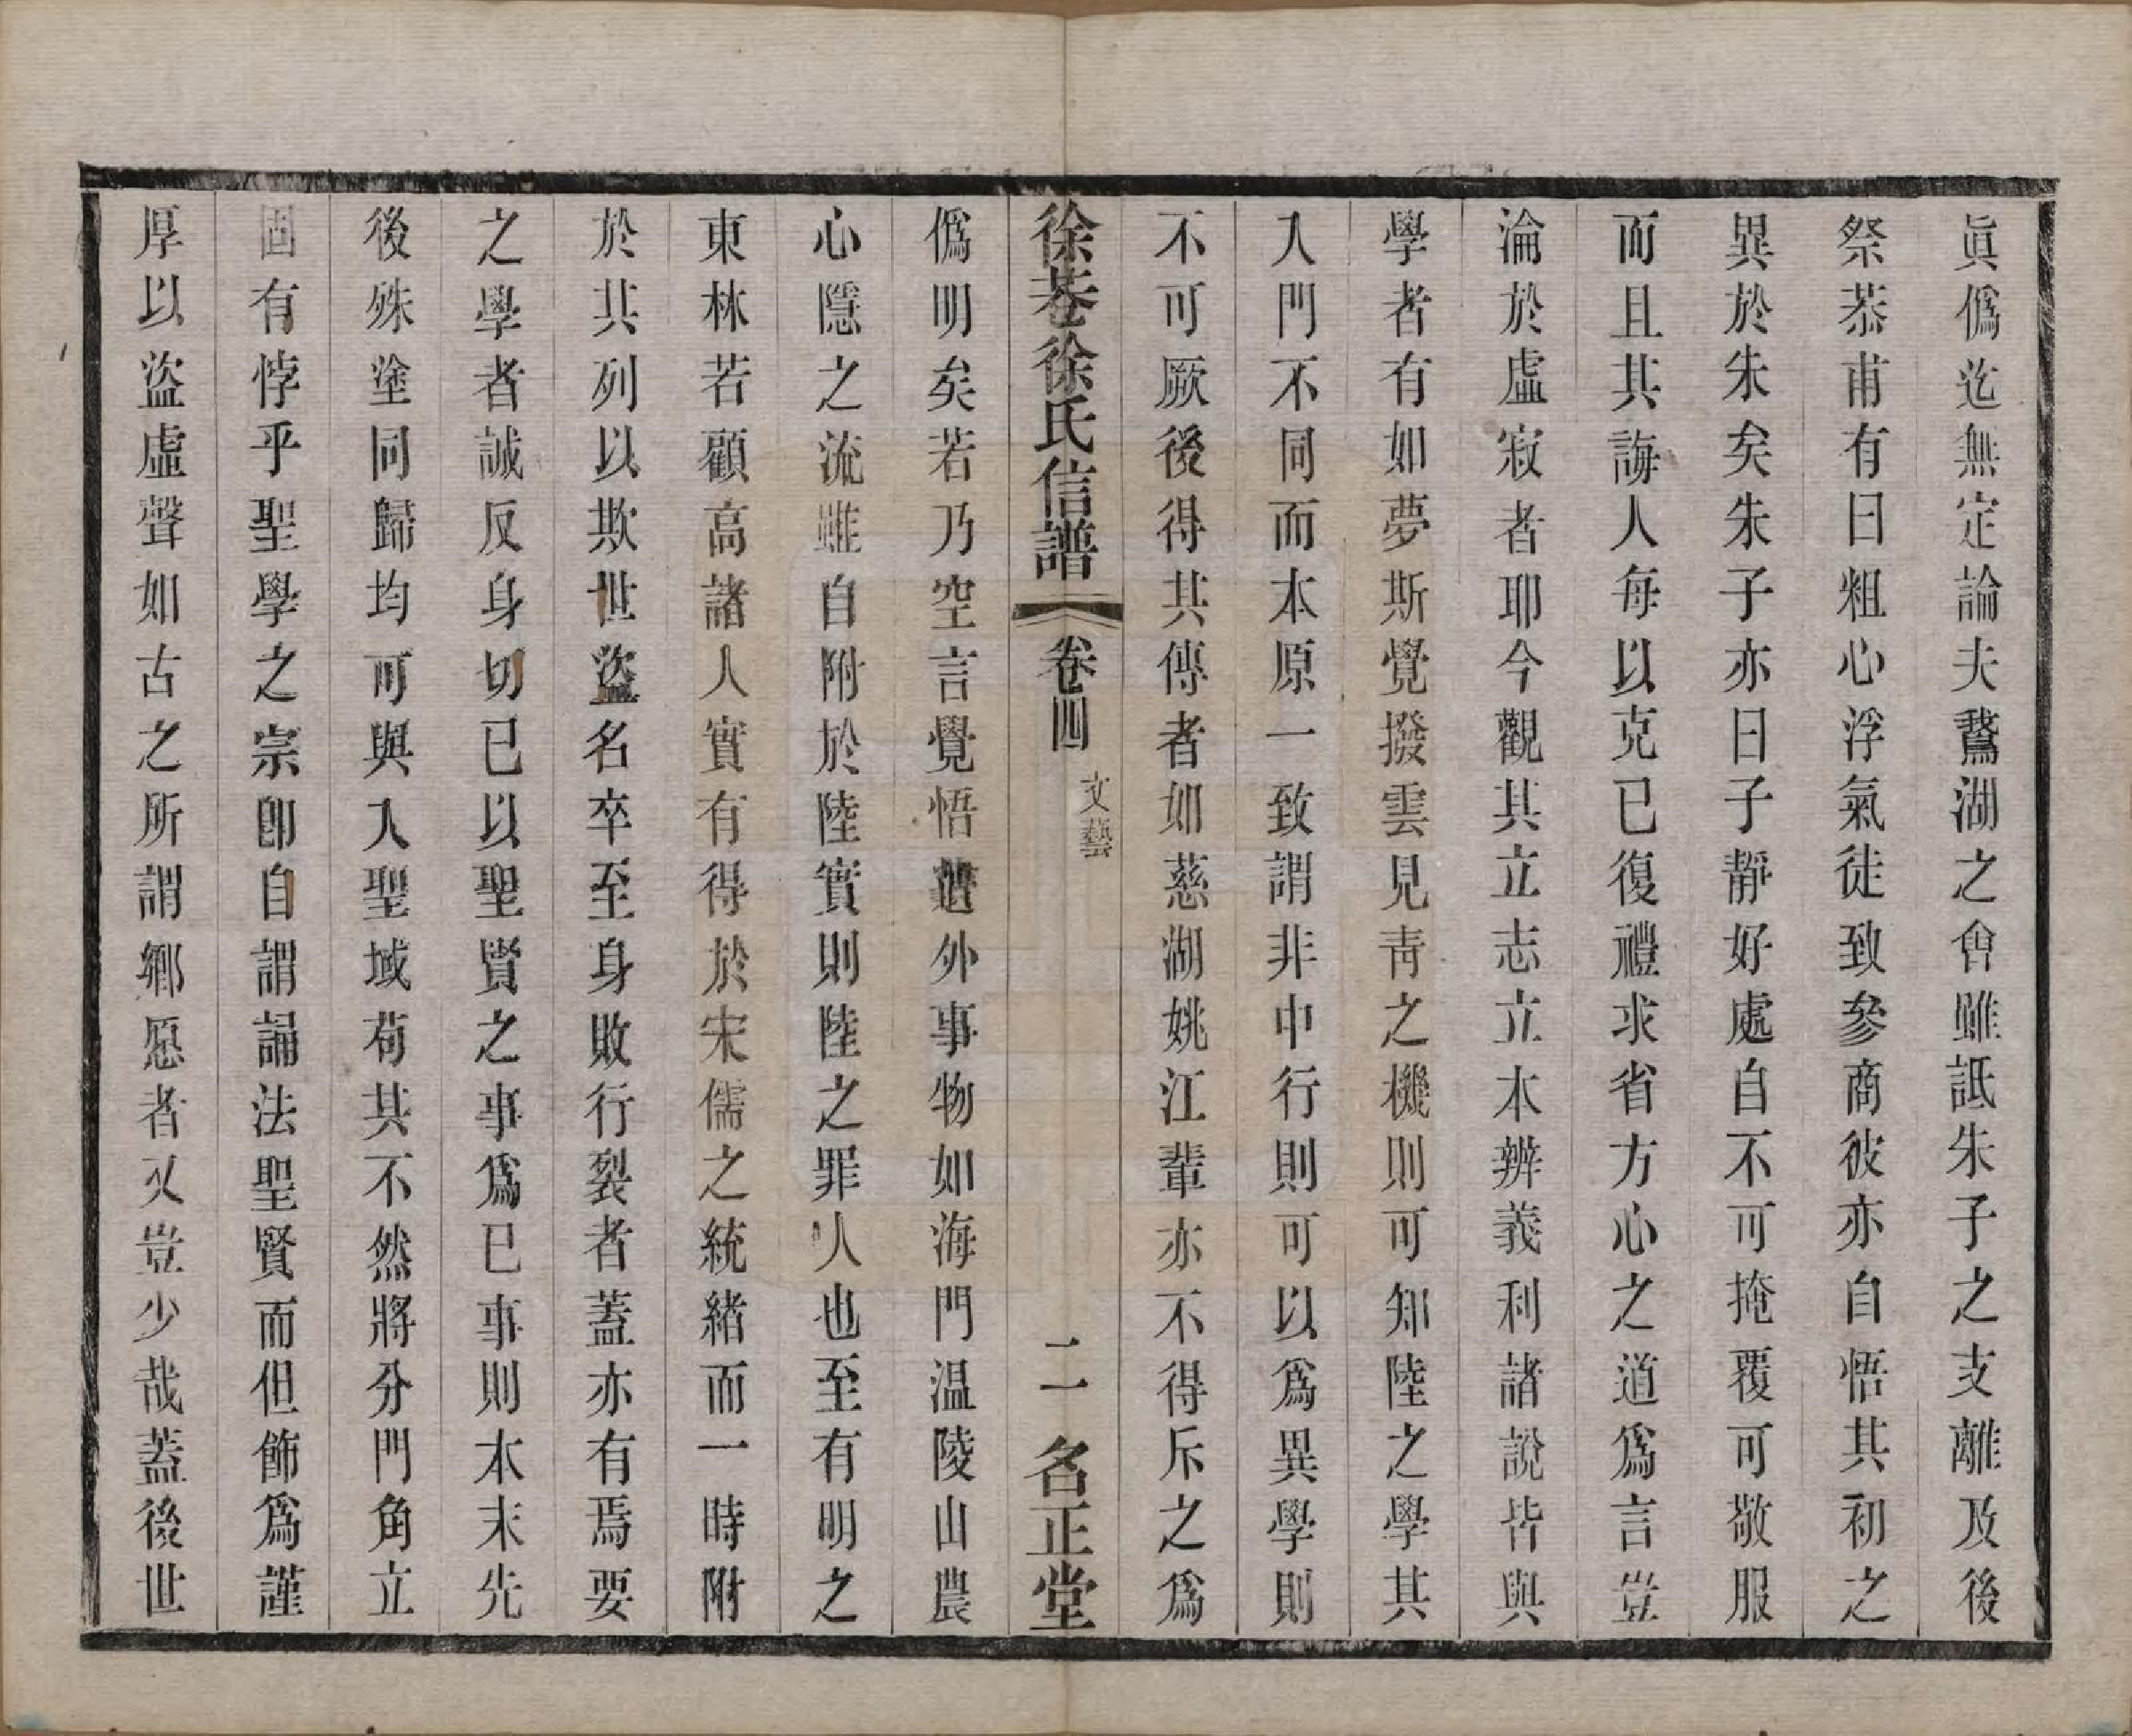 眞僞迄無定論夫鵞湖之會雖詆朱子之支離及後
祭恭甫有曰粗心浮氣徒致參商彼亦自悟其初之
異於朱矣朱子亦曰子靜好處自不可掩覆可敬服
而且其誨人每以克已復禮求省方心之道爲言豈
淪於虛寂者耶今觀其立志立本辨義利諸說皆與
學者有如夢斯覺撥雲見靑之機則可知陸之學其
入門不同而本原一致謂非中行則可以爲異學則
不可厥後得其傳者如慈湖姚江輩亦不得斥之爲
徐巷徐氏信譜 卷四 文藝 二 名正堂
僞明矣若乃空言覺悟遺外事物如海門温陵山農
心隱之流雖自附於陸實則陸之罪人也至有明之
東林若顧高諸人實有得於宋儒之統緒而一時附
於其列以欺世盜名卒至身敗行裂者蓋亦有焉要
之學者誠反身切已以聖賢之事爲已事則本末先
後殊塗同歸均可與入聖域苟其不然將分門角立
固有悖乎聖學之宗卽自謂誦法聖賢而但飾爲謹
厚以盜虛聲如古之所謂鄉愿者又豈少哉蓋後世